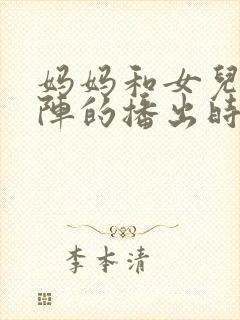 妈妈和女兒
陣的播出時
李本清